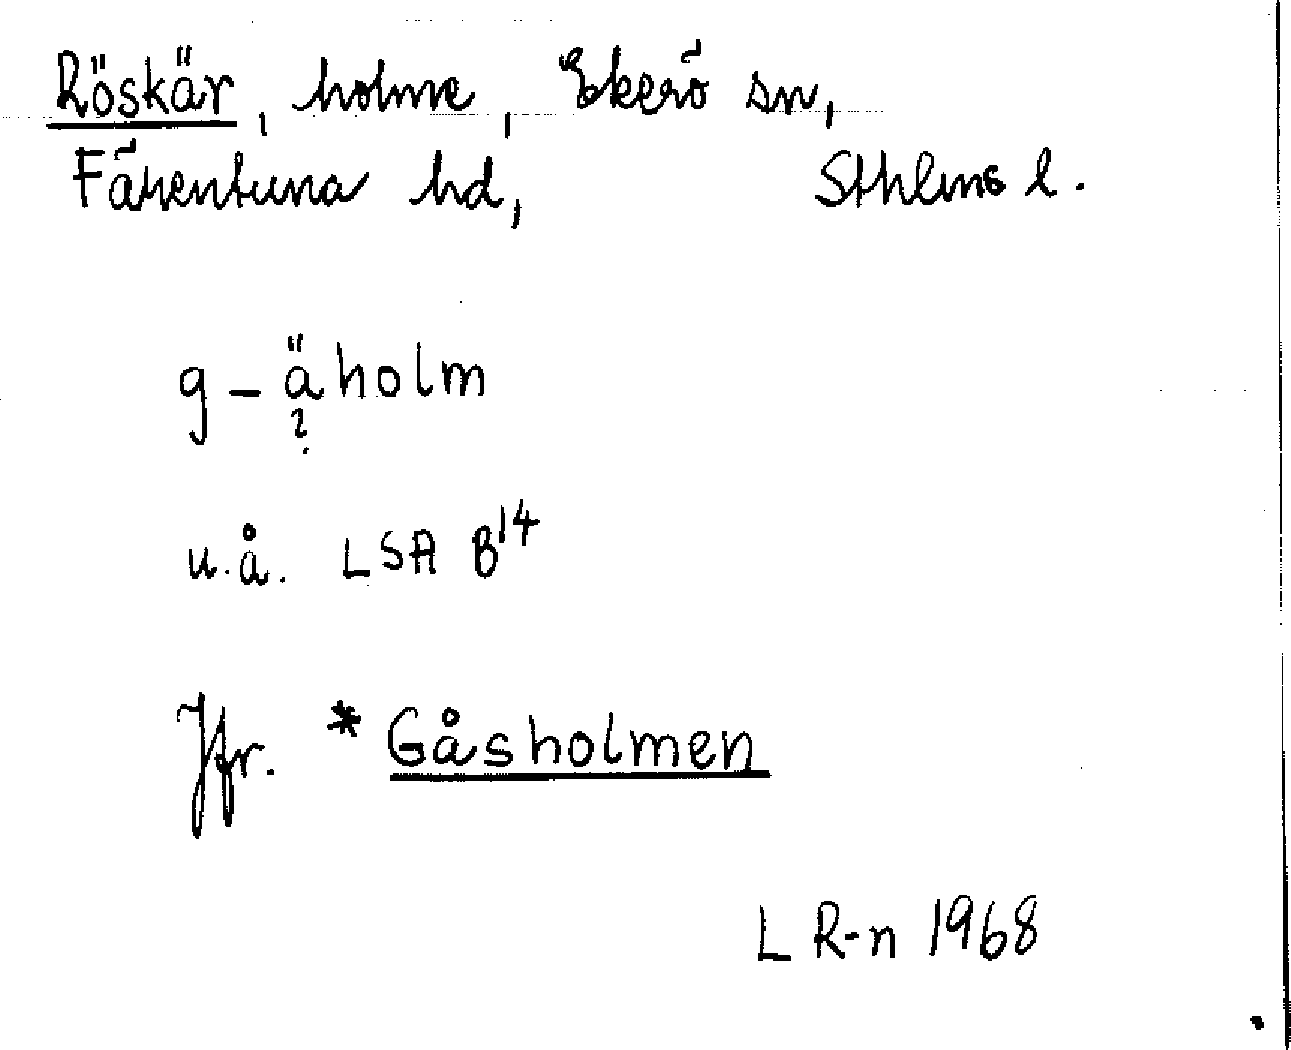 Röskär, holme, Ekerö sn,
Färentuna hd, Sthlms l.
g - äholm
?
u.å. LSA B14
Jfr. * Gåsholmen
L R-n 1968